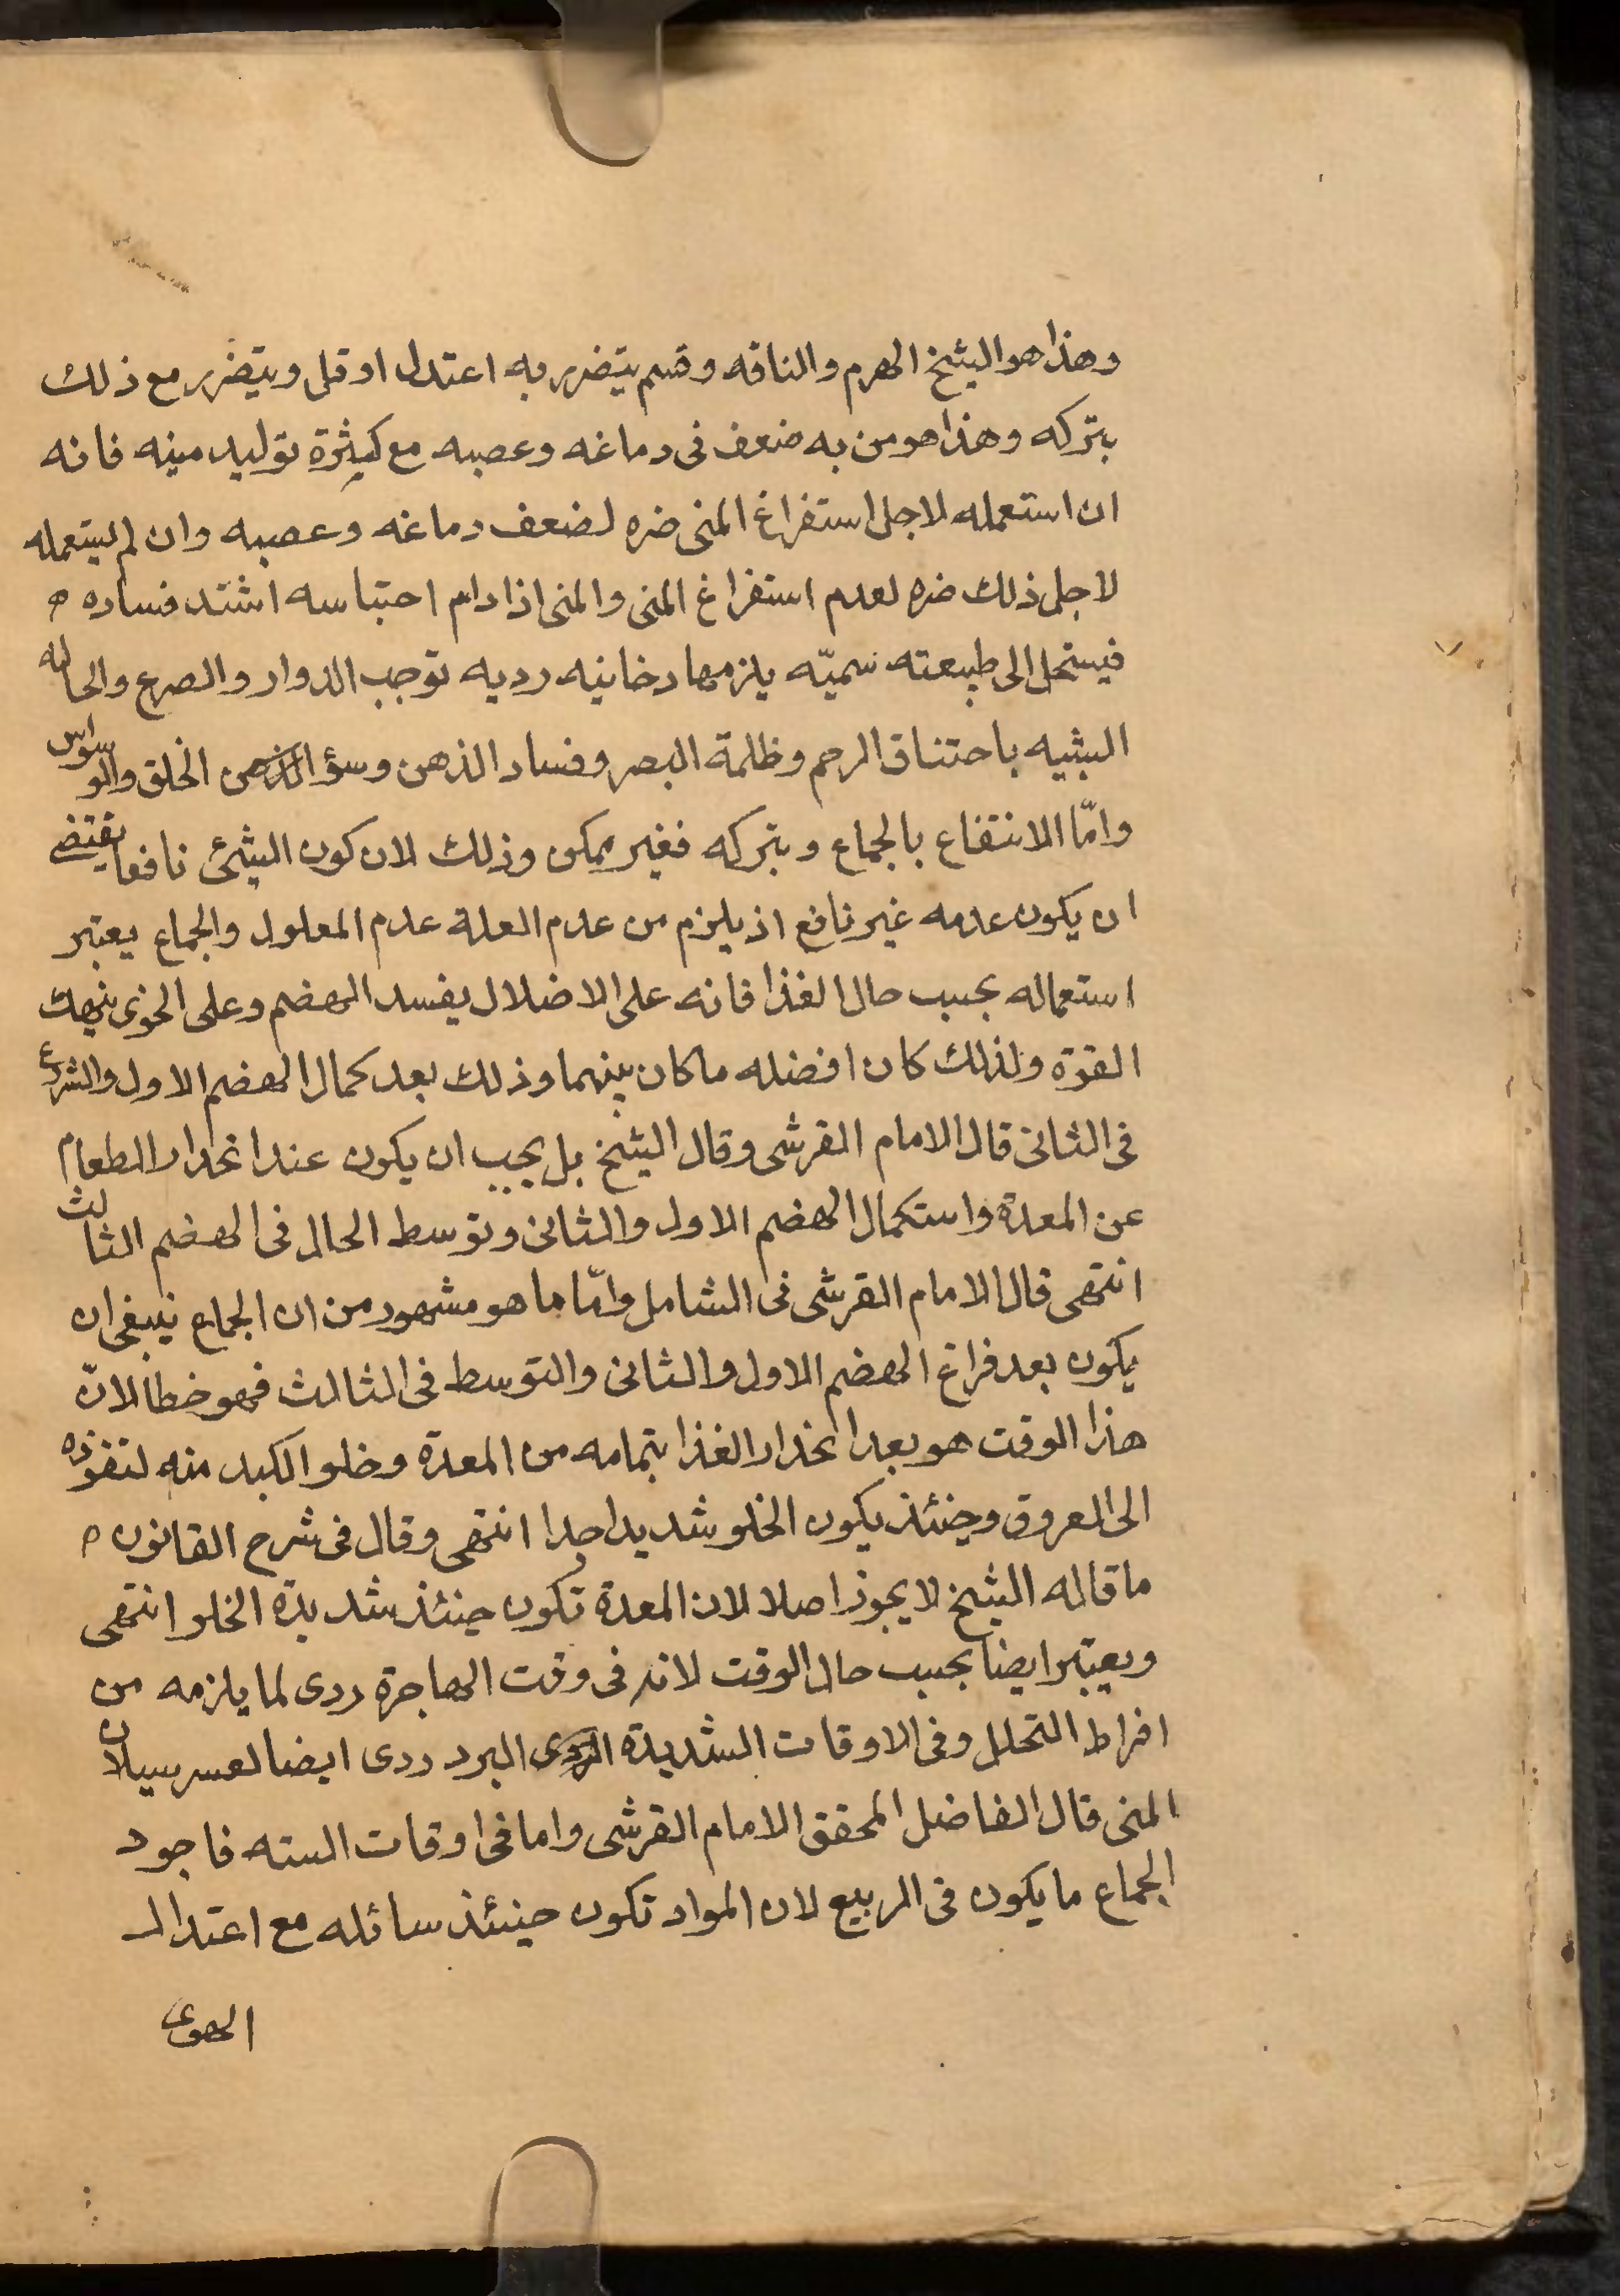 وهذا هو الشيخ الهرم والناقه وقسم يتضرر به اعتدل او قل ويتضرر مع ذلك
بتركه وهذا هو من به ضعف فى دماغه وعصبه مع كيثرة توليد منيه فانه
ان استعمله لاجل استفراغ المنى ضره لضعف دماغه وعصبه وان لم يستعمله
لاجل ذلك ضره لعدم استفراغ المنى والمنى اذا دام احتباسه اشتد فساده
فيستحل الى طبيعته سميّه يلزمها دخانيه رديه توجب الدوار والصرع والحاله
الشبيه باختناق الرحم وظلمة البصر وفساد الذهن وسؤ الذهن الخلق والوسواس
وامّا الانتفاع بالجماع وبتركه فغير ممكن وذلك لان كون الشئ نافعا يقتضى
ان يكون عدمه غير نافع اذ يلزم من عدم العلة عدم المعلول والجماع يعتبر
استعماله بحسب حال الغذا فانه على الاضلال يفسد الهضم وعلى الخوى ينهك
القوة ولذلك كان افضله ما كان بينهما وذلك بعد كمال الهضم الاول والشرع
فى الثانى قال الامام القرشى وقال الشيخ بل يجب ان يكون عند انحدار الطعام
عن المعدة واستكمال الهضم الاول والثانى وتوسط الحال فى الهضم الثالث
انتهى قال الامام القرشى فى الشامل وامّا ما هو مشهور من ان الجماع ينبغى ان
يكون بعد فراغ الهضم الاول والثانى والتوسط فى الثالث فهو خطا لانّ
هذا الوقت هو بعد انحدار الغذا بتمامه من المعدة وخلو الكبد منه لنفوذه
الى العروق وحينئذ يكون الخلو شديدا جدا انتهى وقال فى شرح القانون
ما قاله الشيخ لا يجوز اصلا لان المعدة تكون حينئذ شديدة الخلو انتهى
ويعتبر ايضا بحسب حال الوقت لانه فى وقت الهاجرة ردى لما يلزمه من
افراط التحلل وفى الاوقات الشديدة الردى البرد ردى ايضا لعسر سيلان
المنى قال الفاضل المحقق الامام القرشى واما فى اوقات السنه فاجود
الجماع ما يكون فى الربيع لان المواد تكون حينئذ سائله مع اعتدال
الهوى